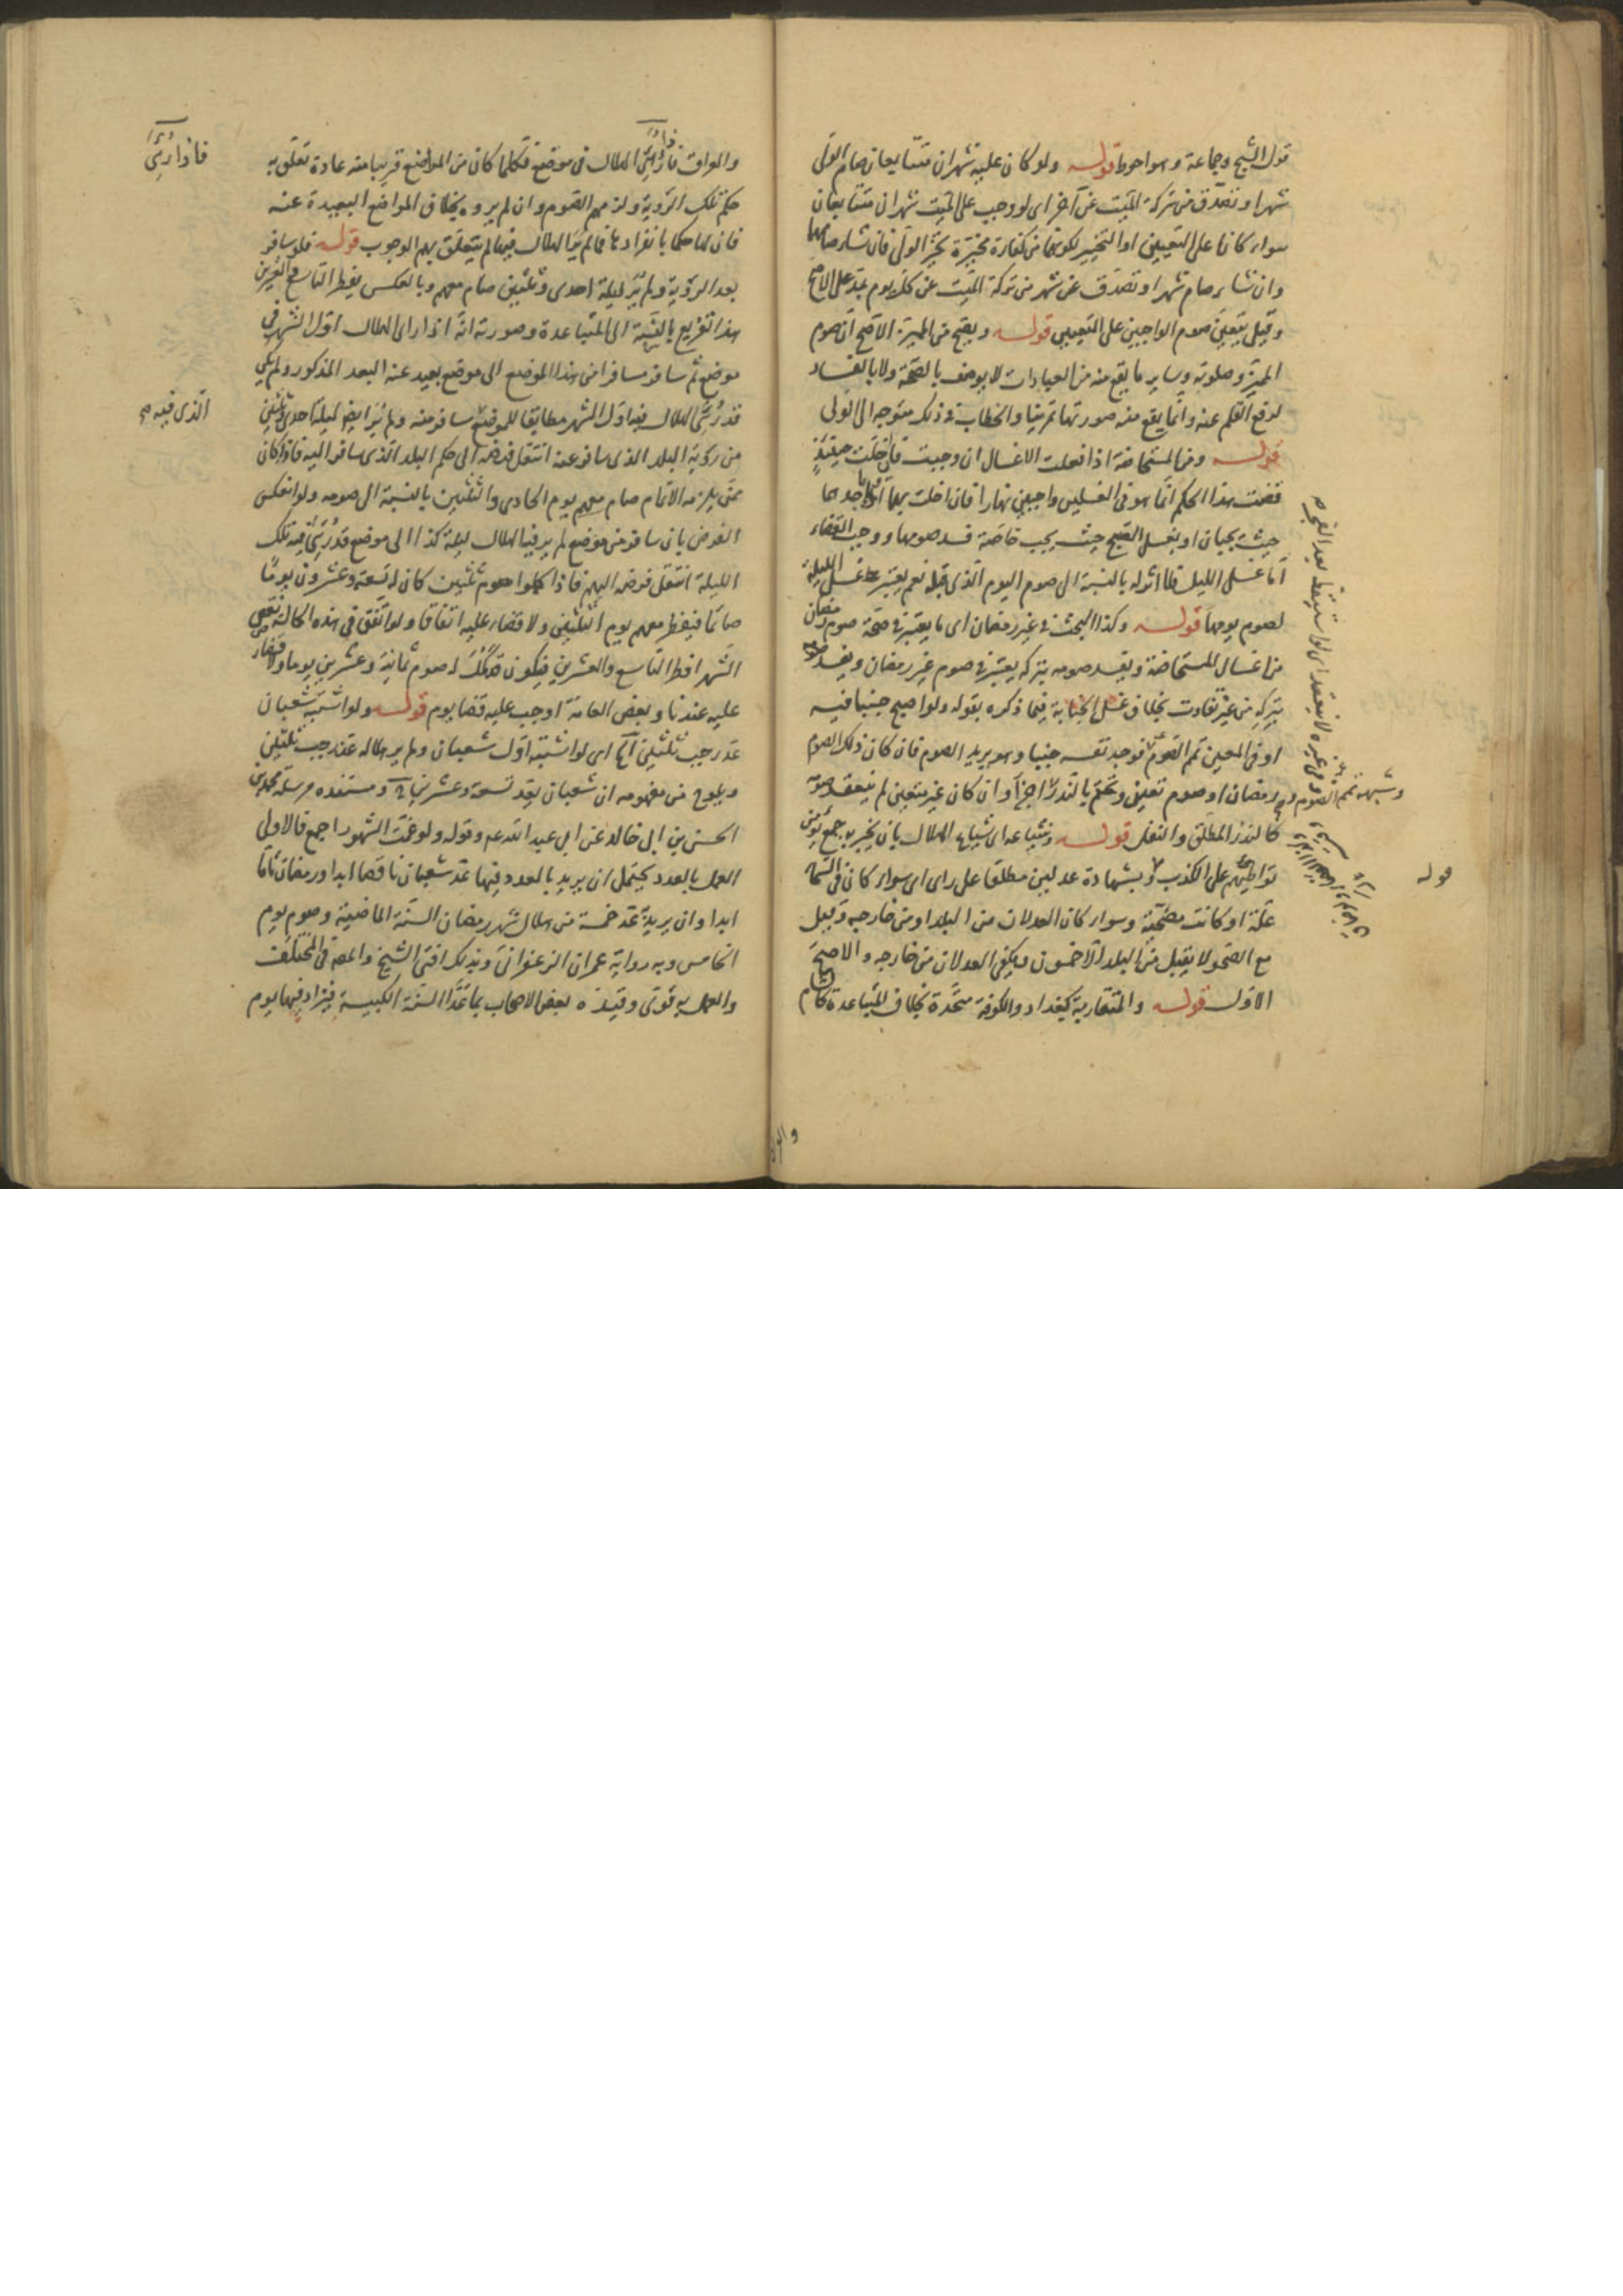 قول الشيخ وجماعة وهو احوط قوله ولو كان عليه شهران متتابعان صام الولى
شهرا وتصدق من تركة الميت عن آخر اى لو وجب على الميت شهران متتابعان
سواء كانا على التعيين او التخيير لكونهما من كفارة مخيرة تخير الولى فان شاء صامهما
وان شاء صام شهرا وتصدق عن شهر من تركة الميت عن كل يوم بمد على الاصح
وقيل يتعين صوم الواجبين على التعيين قوله ويصح من المميز الاصح ان صوم
المميز وصلوته وساير ما يقع منه من العبادات لا يوصف بالصحة ولا بالفساد
لرفع القلم عنه وانما يقع منه صورتها تمرينا والخطاب فى ذلك متوجه الى الولى
قوله ومن المستحاضة اذا فعلت الاغسال ان وجبت فان اخلت حينئذ
قضت هذا الحكم انما هو فى الغسلين واجبين نهارا فان اخلت بهما او باحدهما
حيث يجبان او بغسل الصبح حيث يجب خاصة فسد صومها ووجب القضاء
اما غسل الليل فلا اثر له بالنسبة الى صوم اليوم الذى قبله نعم يعتبر غسل الليلة
لصوم يومها قوله وكذا البحث فى غير رمضان اى ما يعتبر فى صحة صوم رمضان
من اغسال المستحاضة ويفسد صومه بتركه يعتبر فى صوم غير رمضان ويفسد صومه
بتركه من غير تفاوت بخلاف غسل الجنابة فيما ذكره بقوله ولو اصبح جنبا فيه
او فى المعين تمم الصوم فوجد نفسه جنبا وهو يريد الصوم فان كان ذلك الصوم
رمضان او صوم تعين وتحتم بالنذر اجزأ وان كان غير متعين لم ينعقد صومه
كالنذر المطلق والنفل قوله وبشياعه اى شياع الهلال بان يخبر به جمع يؤمن
تواطيهم على الكذب وبشهادة عدلين مطلقا على راى اى سواء كان فى السماء
علة او كانت مصحية وسواء كان العدلان من البلد او من خارجه وقيل
مع الصحو لا يقبل من البلد الا خمسون ويكفى العدلان من خارجه والاصح
الاول قوله والمتقاربة كبغداد والكوفة متحدة بخلاف المتباعدة كالشام
وشبهه تمم الصوم
فى غيره لا ينعقد اى لو استيقظ بعد الفجر صح
قوله
والعراق فاذا رئى الهلال فى موضع فكلما كان من المواضع قريبا منه عادة تعلق به
حكم تلك الرؤية ولزمهم الصوم وان لم يروه بخلاف المواضع البعيدة عنه
فان لها حكما بانفرادها فما لم ير الهلال فيها لم يتعلق بهم الوجوب قوله فلو سافر
بعد الرؤية ولم ير ليلة احدى وثلثين صام معهم وبالعكس يفطر التاسع والعشرين
هذا تفريع بالنسبة الى المتباعدة وصورته انه اذا راى الهلال اول الشهر فى
موضع ثم سافر مسافر من هذا الموضع الى موضع بعيد عنه البعد المذكور ولم يكن
قد رئى الهلال فيه اول الشهر مطابقا للموضع سافر منه ولم ير ايضا ليلة احدى وثلثين
من رؤية البلد الذى سافر عنه انتقل فرضه الى حكم البلد الذى سافر اليه فاذا كان
ممن يلزمه الاتمام صام معهم يوم الحادى والثلثين بالنسبة الى صومه ولو انعكس
الفرض بان سافر من موضع لم ير فيه الهلال ليلة كذا الى موضع قد رئى فيه تلك
الليلة انتقل فرضه اليهم فاذا اكملوا صوم ثلثين كان له تسعة وعشرون يوما
صائما فيفطر معهم يوم الثلثين ولا قضاء عليه اتفاقا ولو اتفق فى هذه الحالة نقص
الشهر افطر التاسع والعشرين فيكون قد كمل له صوم ثمانية وعشرين يوما ولا قضاء
عليه عندنا وبعض العامة اوجب عليه قضا يوم قوله ولو اشتبه شعبان
عد رجب ثلثين آه اى لو اشتبه اول شعبان ولم ير هلاله عد رجب ثلثين
ويلوح من مفهومه ان شعبان يعد تسعة وعشرين ومستنده مرسلة محمد بن
الحسن بن ابى خالد عن ابى عبد الله عم وقوله ولو غمت الشهور اجمع فالاولى
العمل بالعدد يحتمل ان يريد بالعدد فيها عد شعبان ناقصا ابدا ورمضان تاما
ابدا وان يريد عد خمسة من هلال شهر رمضان السنة الماضية وصوم يوم
الخامس وبه رواية عمران الزعفرانى وبذلك افتى الشيخ والمص فى المختلف
والعمل به قوى وقيده بعض الاصحاب بما عدا السنة الكبيسة فيزاد فيها يوم
فاذا رئى
الذى فيه صح